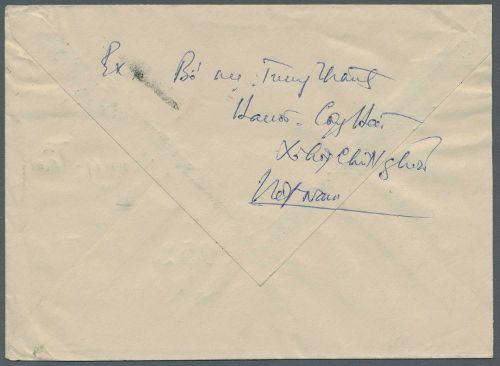 Ex Bố mẹ: Trung Thắng
Hanoi - Cộng Hòa
Xã hội Chủ Nghĩa
Việt Nam